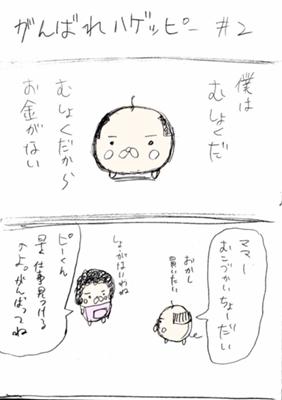 がんばれハゲッピー #2
僕は
むしょくだ
むしょくだから
お金がない
ママー
おこづかいちょーだい
おかし
買いたい
しょーがないわね
ピーくん
早く仕事見つける
のよ。がんばってね